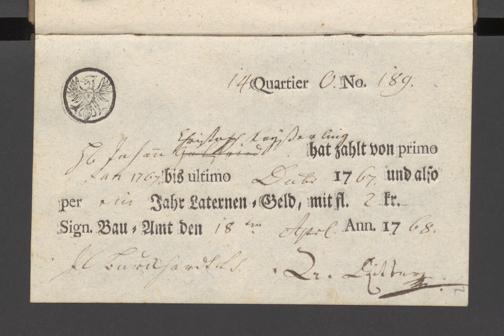 14 Quartier O. No. 189.
Hr Johann Christoph
hat zahlt von primo
Jan 1767 bis ultimo Dcbr 1767. und also
per ein Jahr Laternen-Geld, mit fl. 2 kr.
Sign. Bau-Amt den 18ten Aprl. Ann. 1768.